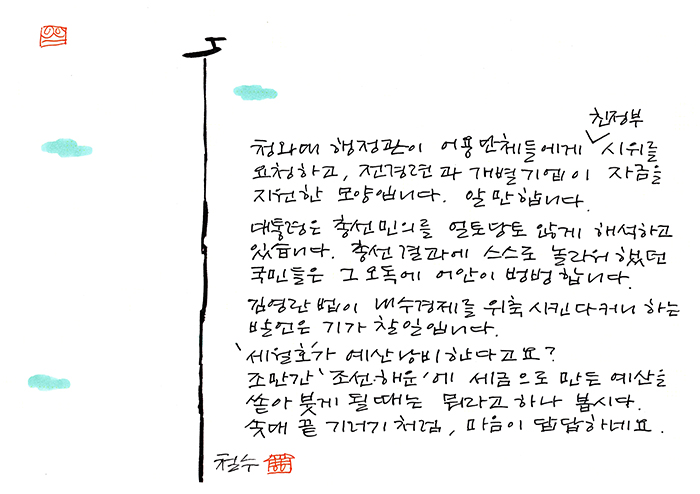 친정부
청와대 행정관이 어용단체들에게 ✓ 시위를
요청하고, 전경련과 개별기업이 자금을
지원한 모양입니다. 알 만합니다.
대통령은 총선민의를 얼토당토 않게 해석하고
있습니다. 총선 결과에 스스로 놀라워 했던
국민들은 그 오독에 어안이 벙벙합니다.
김영란법이 내수경제를 위축시킨다커니 하는
발언은 기가 찰 일입니다.
'세월호'가 예산낭비한다고요?
조만간 '조선·해운'에 세금으로 만든 예산을
쏟아 붓게 될 때는 뭐라고 하나 봅시다.
솟대 끝 기러기처럼, 마음이 답답하네요.
철수